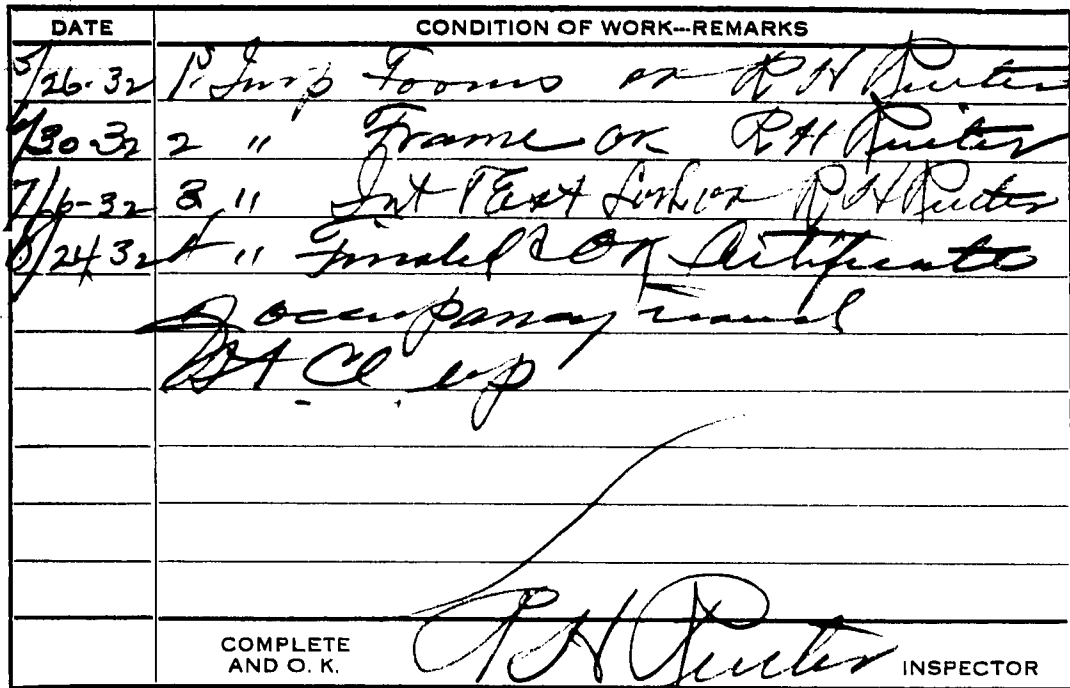 DATE CONDITION OF WORK---REMARKS
5/26-32 1. Insp Fooms ok R H Ruiter
/30-32 2 " Frame OK R H Ruiter
7/6-32 3 " Int & Ext R H Ruiter
/24 32 4 " Finaled & OK Certificate
of occupancy issued
up
COMPLETE
AND O. K. R H Ruiter INSPECTOR